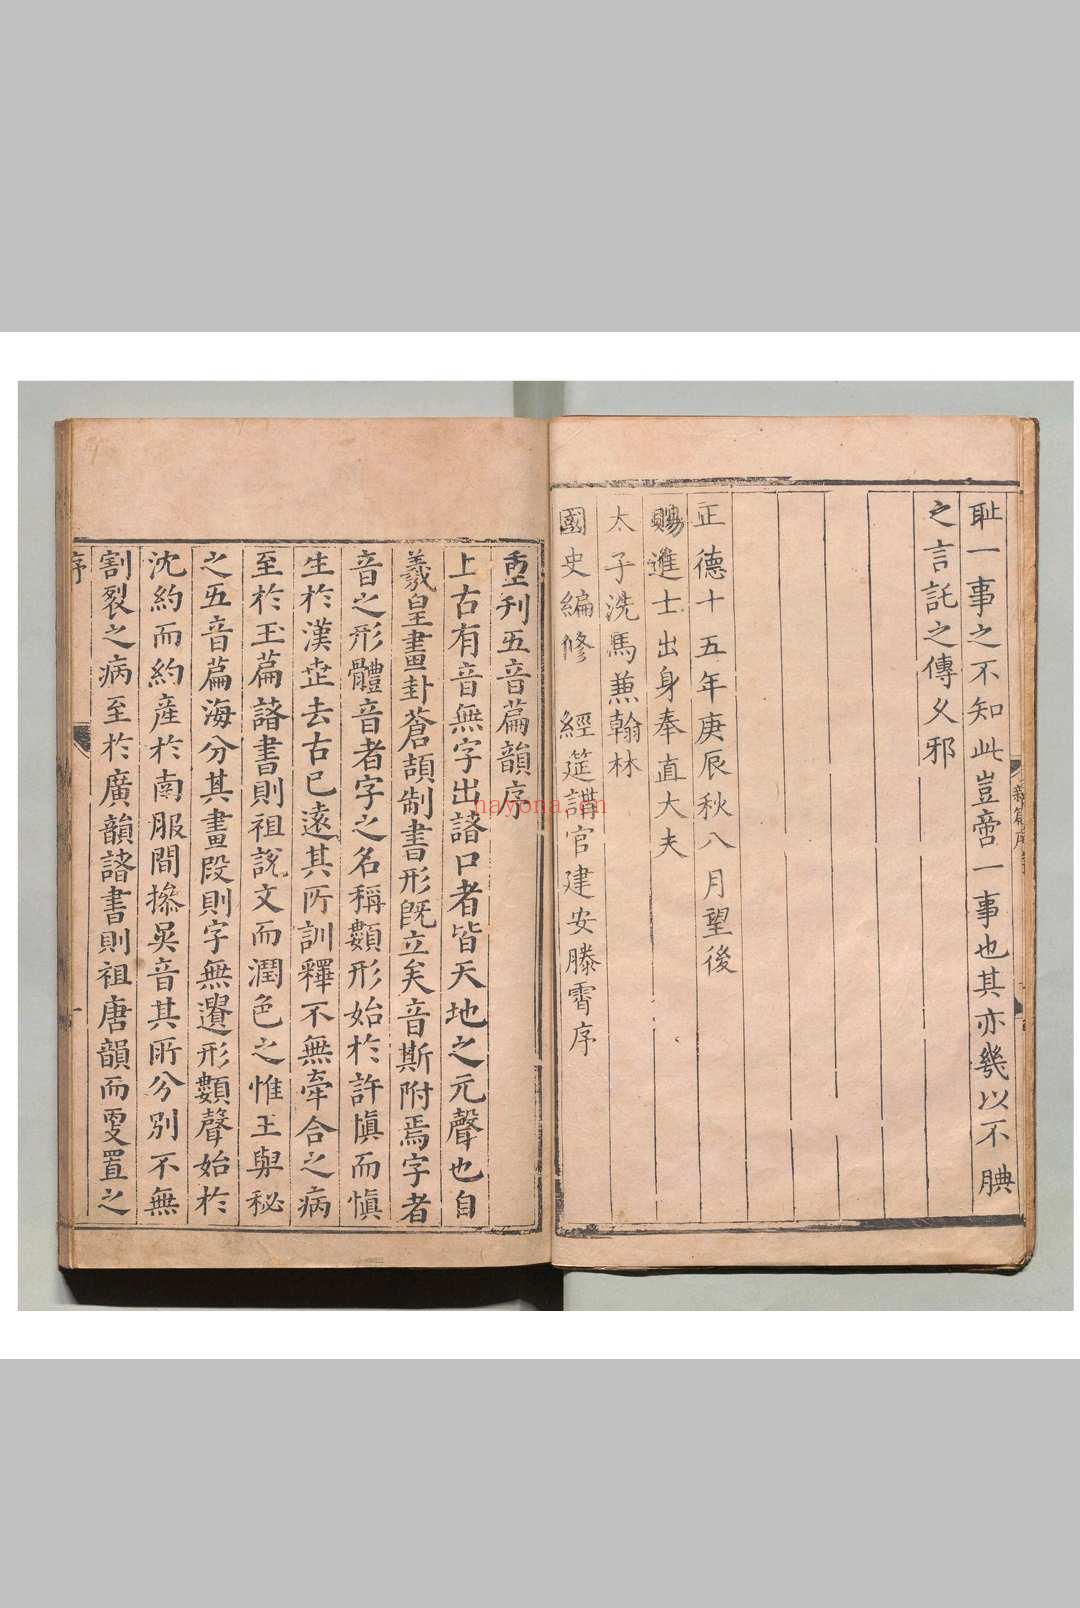 耻一事之不知此豈啻一事也其亦幾以不腆
之言託之傳乆邪
正德十五年庚辰秋八月望後
賜進士出身奉直大夫
太子洗馬兼翰林
國史編修 經筵講官建安滕霄序
重刊五音篇韻序
上古有音無字出諸口者皆天地之元聲也自
羲皇畫卦蒼頡制書形旣立矣音斯附焉字者
音之形體音者字之名稱類形始於許愼而愼
生於漢世去古已遠其所訓釋不無牽合之病
至於玉篇諸書則祖說文而潤色之惟王與秘
之五音篇海分其畫段則字無遺形類聲始於
沈約而約産於南服間摻吳音其所分別不無
割裂之病至於廣韻諸書則祖唐韻而更置之
序
nayona.cn